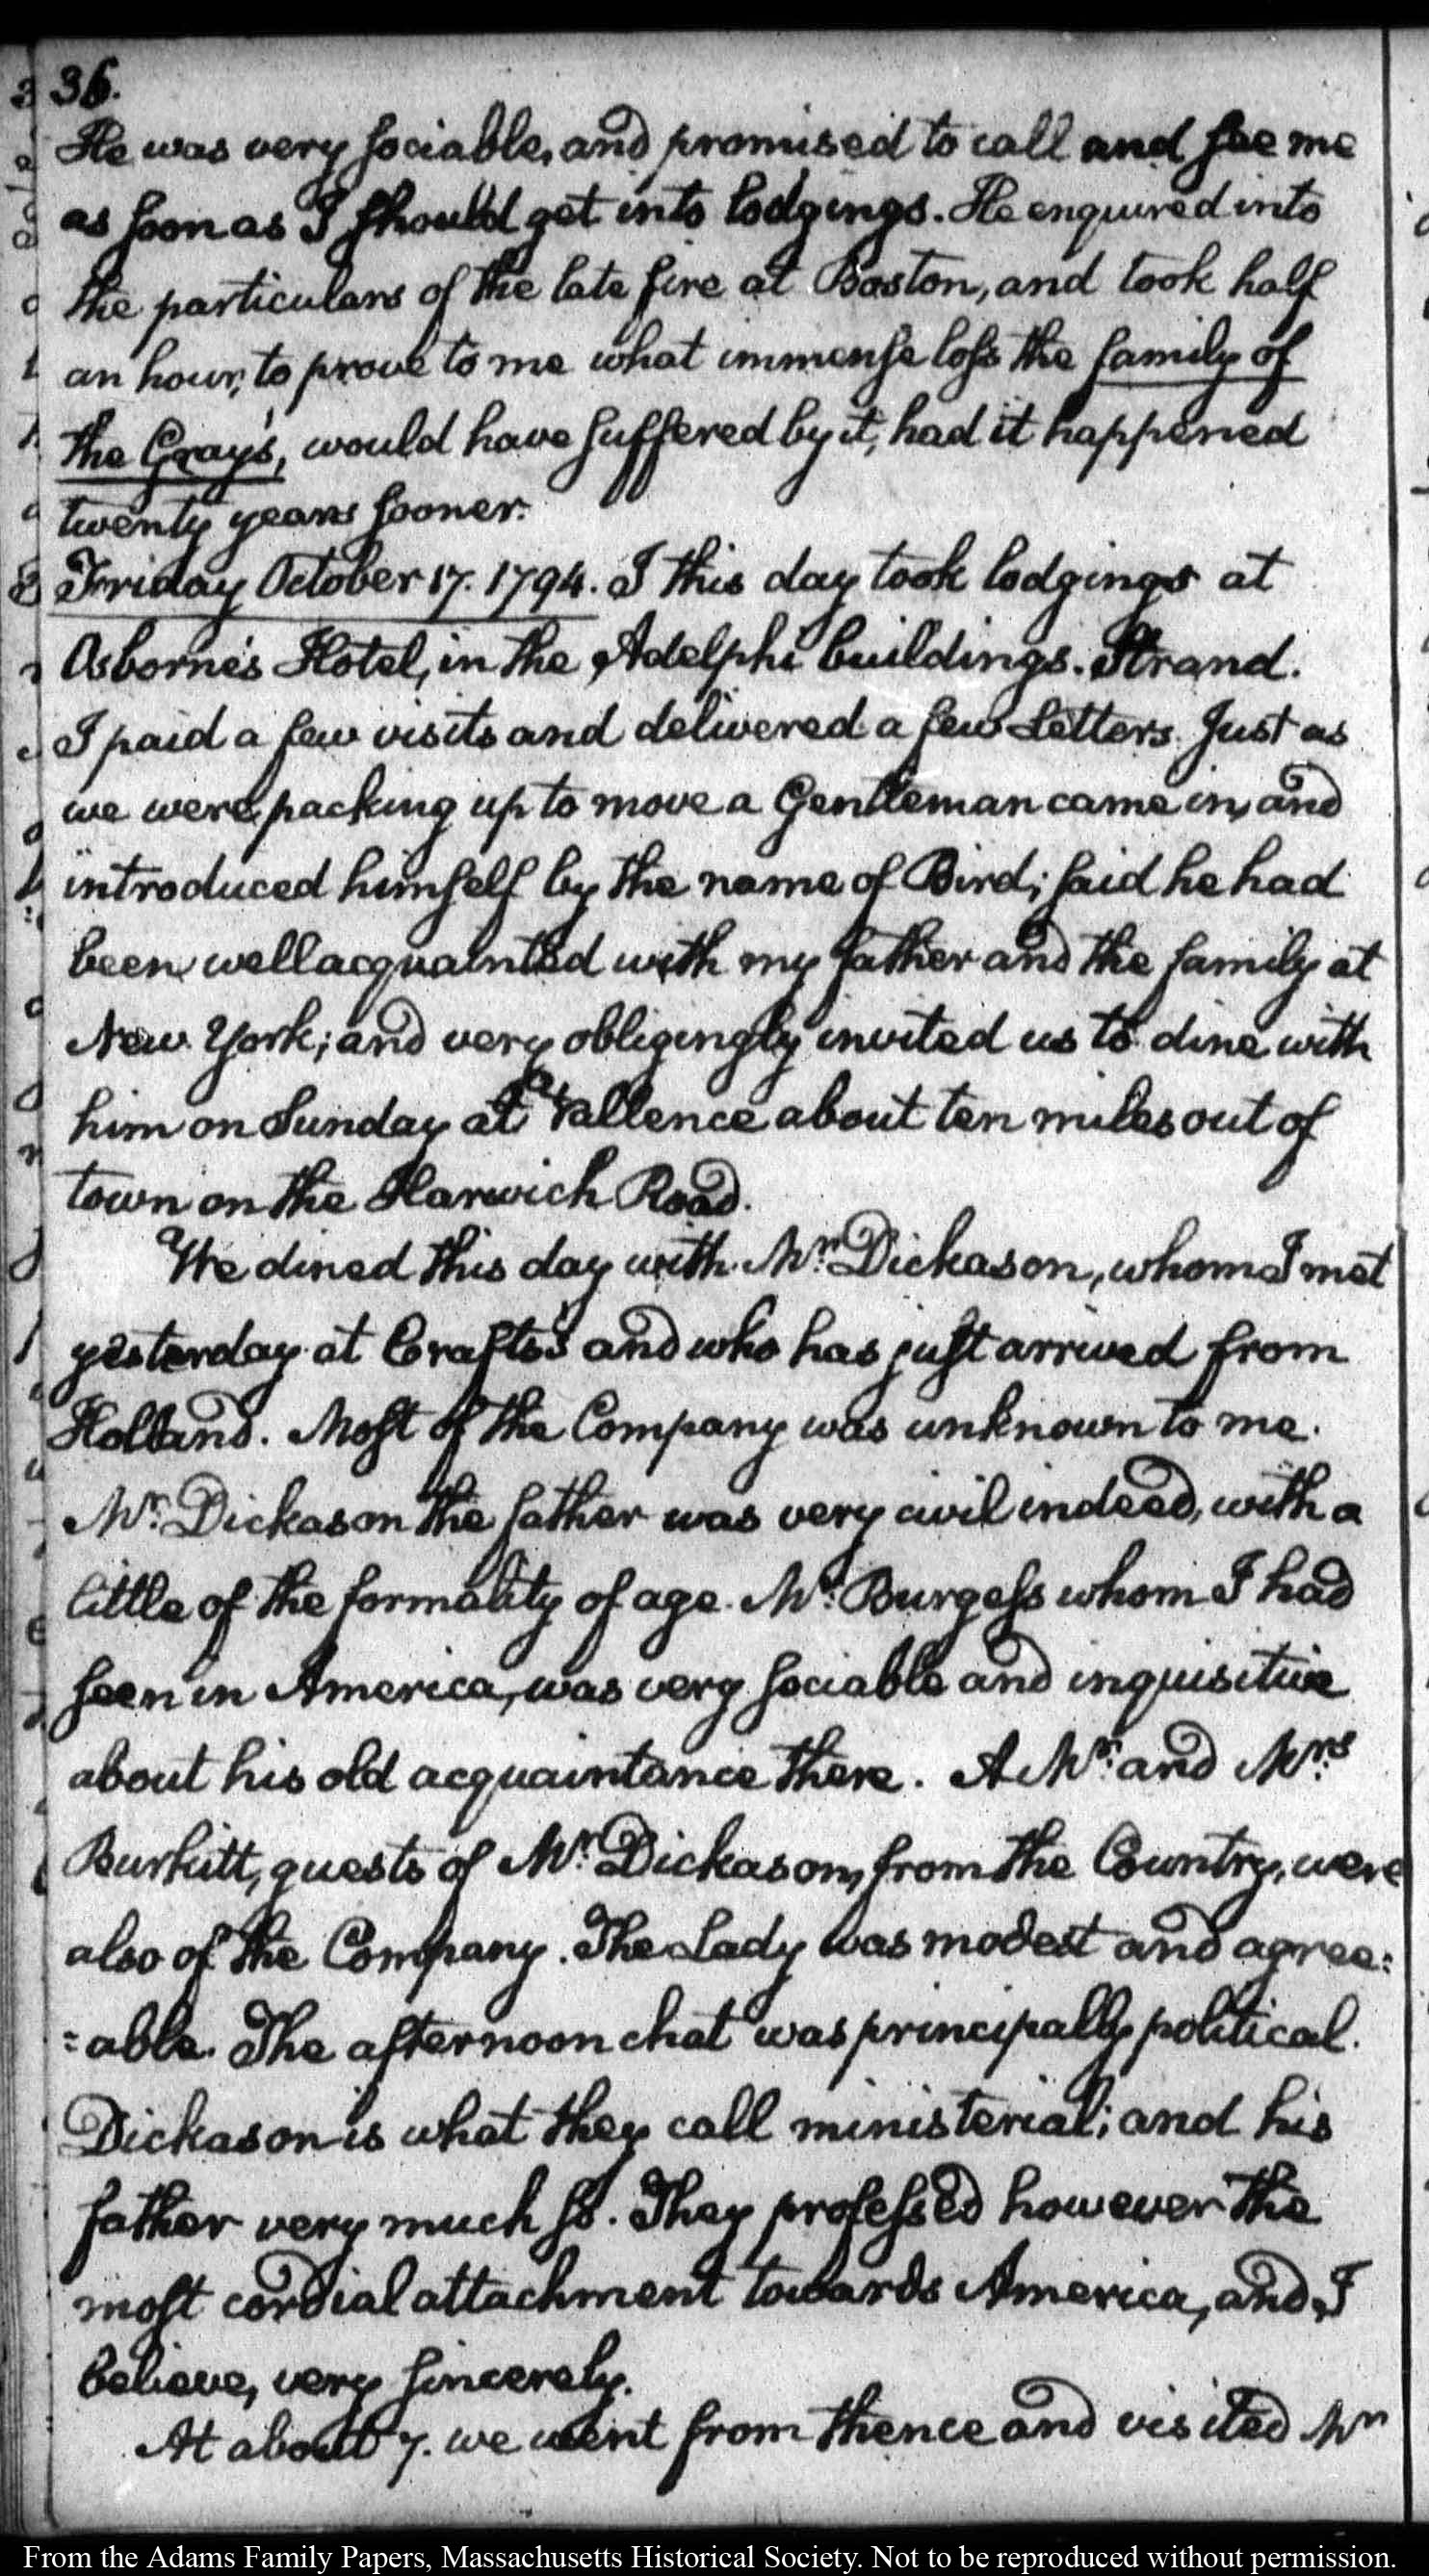 36.
He was very sociable, and promised to call and see me
as soon as I should get into lodgings. He enquired into
the particulars of the late fire at Boston, and took half
an hour, to prove to me what immense loss the family of
the Gray's, would have suffered by it, had it happened
twenty years sooner.
Friday October 17. 1794. I this day took lodgings at
Osborne's Hotel, in the Adelphi buildings. Strand.
I paid a few visits and delivered a few Letters. Just as
we were packing up to move a Gentleman came in, and
introduced himself by the name of Bird; said he had
been well acquainted with my father and the family at
New York; and very obligingly invited us to dine with
him on Sunday at about ten miles out of
town on the Harwich Road.
We dined this day with Mr. Dickason, whom I met
yesterday at Crafts's and who has just arrived from
Holland. Most of the Company was unknown to me.
Mr. Dickason the father was very civil indeed, with a
little of the formality of age. Mr. Burgess whom I had
seen in America, was very sociable and inquisitive
about his old acquaintance there. A Mr. and Mrs.
Burkitt, guests of Mr. Dickason, from the Country, were
also of the Company. The Lady was modest and agree=
=able. The afternoon chat was principally political.
Dickason is what they call ministerial; and his
father very much so. They professed however the
most cordial attachment towards America, and I
believe, very sincerely.
At about 7. we went from thence and visited Mr
From the Adams Family Papers, Massachusetts Historical Society. Not to be reproduced without permission.